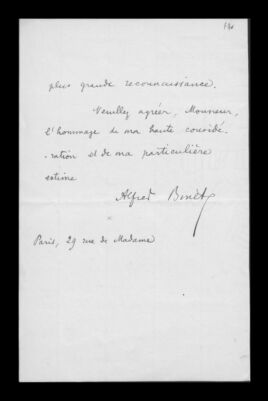 plus grande reconnaissance.
Veuillez agréer, Monsieur,
l'hommage de ma haute considé-
ration et de ma particulière
estime
Alfred Binet
Paris, 29 rue de Madame